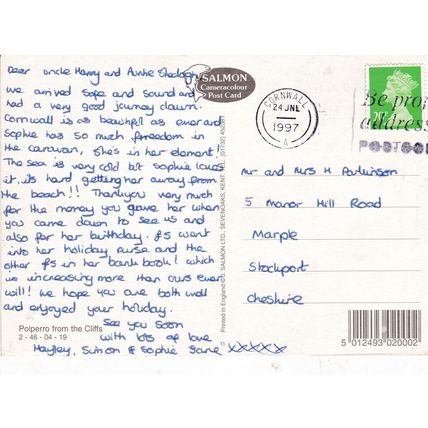 Dear uncle Harry and Auntie Sheelagh,
we arrived safe and sound and
had a very good journey down.
Cornwall is as beautiful as ever and
Sophie has so much freedom in
the caravan, she's in her element!
The sea is very cold but sophie loves
it, its hard getting her away from
the beach!! Thankyou very much
for the money you gave her when
you came down to see us and
also for her birthday. £5 went
into her holiday purse and the
other £5 in her bank book! which
is increasing more than ours ever
will! we hope you are both well
and enjoyed your holiday.
See you soon
with lots of love
Hayley, Simon & Sophie Jane xxxxx
Polperro from the Cliffs
2 - 46 - 04 - 19
SALMON
Cameracolour
Post Card
Printed in England © J. SALMON LTD., SEVENOAKS, KENT. (01732) 452381
CORNWALL
24 JNL
1997
A
Be pro
address
POSTCO
Mr and Mrs H Parkinson
5 Manor Hill Road
Marple
Stockport
Cheshire
5 012493 020002